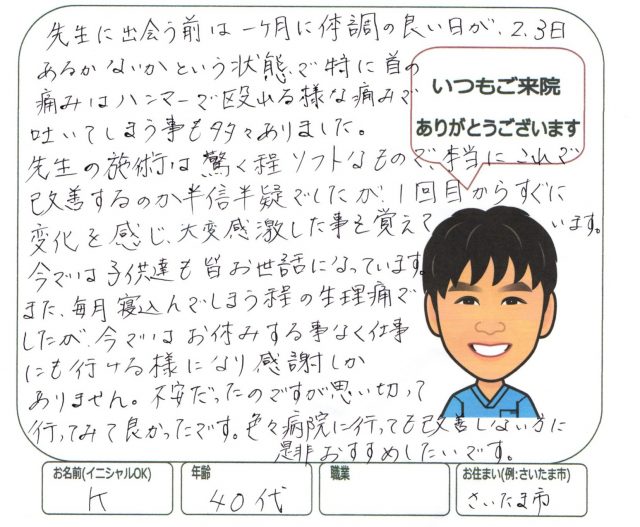 先生に出会う前は一ケ月に体調の良い日が、2、3日
あるかないかという状態で特に首の
痛みはハンマーで殴れる様な痛みで
吐いてしまう事も多々ありました。
先生の施術は驚く程ソフトなもので、本当にこれで
改善するのか半信半疑でしたが、1回目からすぐに
変化を感じ、大変感激した事を覚えています。
今では子供達も皆お世話になっています。
また、毎月寝込んでしまう程の生理痛で
したが、今ではお休みする事なく仕事
にも行ける様になり感謝しか
ありません。不安だったのですが思い切って
行ってみて良かったです。色々病院に行っても改善しない方に
是非おすすめしたいです。
いつもご来院
ありがとうございます
お名前(イニシャルOK)
K
年齢
40代
職業
お住まい(例:さいたま市)
さいたま市